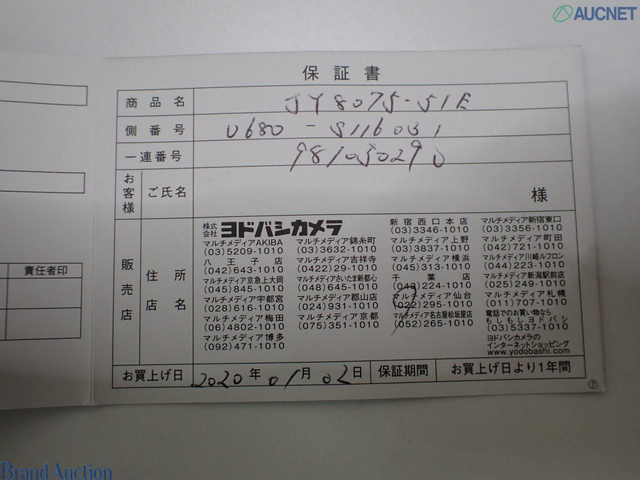 AUCNET
保証書
商品名 JY8075-51E
側番号 U680-S116031
一連番号 98105029U
お客様 ご氏名 様
販売店 住所 店名
株式会社 ヨドバシカメラ
マルチメディアAKIBA
(03)5209-1010
八王子店
(042)643-1010
マルチメディア京急上大岡
(045)845-1010
マルチメディア宇都宮
(028)616-1010
マルチメディア梅田
(06)4802-1010
マルチメディア博多
(092)471-1010
マルチメディア錦糸町
(03)3632-1010
マルチメディア吉祥寺
(0422)29-1010
マルチメディアさいたま新都心
(048)645-1010
マルチメディア郡山
(024)931-1010
マルチメディア京都
(075)351-1010
新宿西口本店
(03)3346-1010
マルチメディア上野
(03)3837-1010
マルチメディア横浜
(045)313-1010
千葉店
(043)224-1010
マルチメディア仙台
(022)295-1010
マルチメディア名古屋松坂屋店
(052)265-1010
マルチメディア新宿東口
(03)3356-1010
マルチメディア町田
(042)721-1010
マルチメディア川崎ルフロン
(044)223-1010
マルチメディア新潟駅前店
(025)249-1010
マルチメディア札幌
(011)707-1010
電話でのお買物は
もしもしヨドバシ
(03)5337-1010
ヨドバシカメラの
インターネットショッピング
www.yodobashi.com
お買上げ日 2020年01月02日 保証期間 お買上げ日より1年間
責任者印
Brand Auction